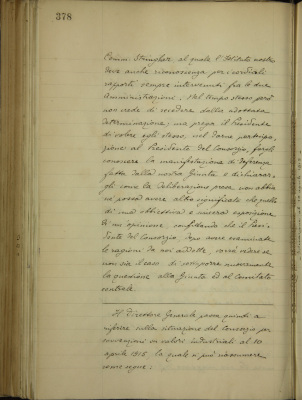 378
Comm. Stringher al quale l'Istituto nostro
deve anche riconoscenza per i cordiali
rapporti sempre intervenuti fra le due
Amministrazioni. Nel tempo stesso però
non crede di recedere dalla adottata
determinazione, ma prega il Presidente
di volere egli stesso, nel darne partecipa-
zione al Presidente del Consorzio, fargli
conoscere la manifestazione di deferenza
fatta dalla nostra Giunta e dichiarar-
gli come la deliberazione presa non abbia
nè possa avere altro significato che quello
di una obbiettiva e sincera esposizione
di sue opinioni confidando che il Presi-
dente del Consorzio, dopo avere esaminate
le ragioni da noi addotte, vorrà vedere se
non sia il caso di riproporre nuovamente
la questione alla Giunta ed al Comitato
centrale.
Il Direttore Generale passa quindi a
riferire sulla situazione del Consorzio per
sovvenzioni su valori industriali al 10
aprile 1915, la quale si può riassumere
come segue: